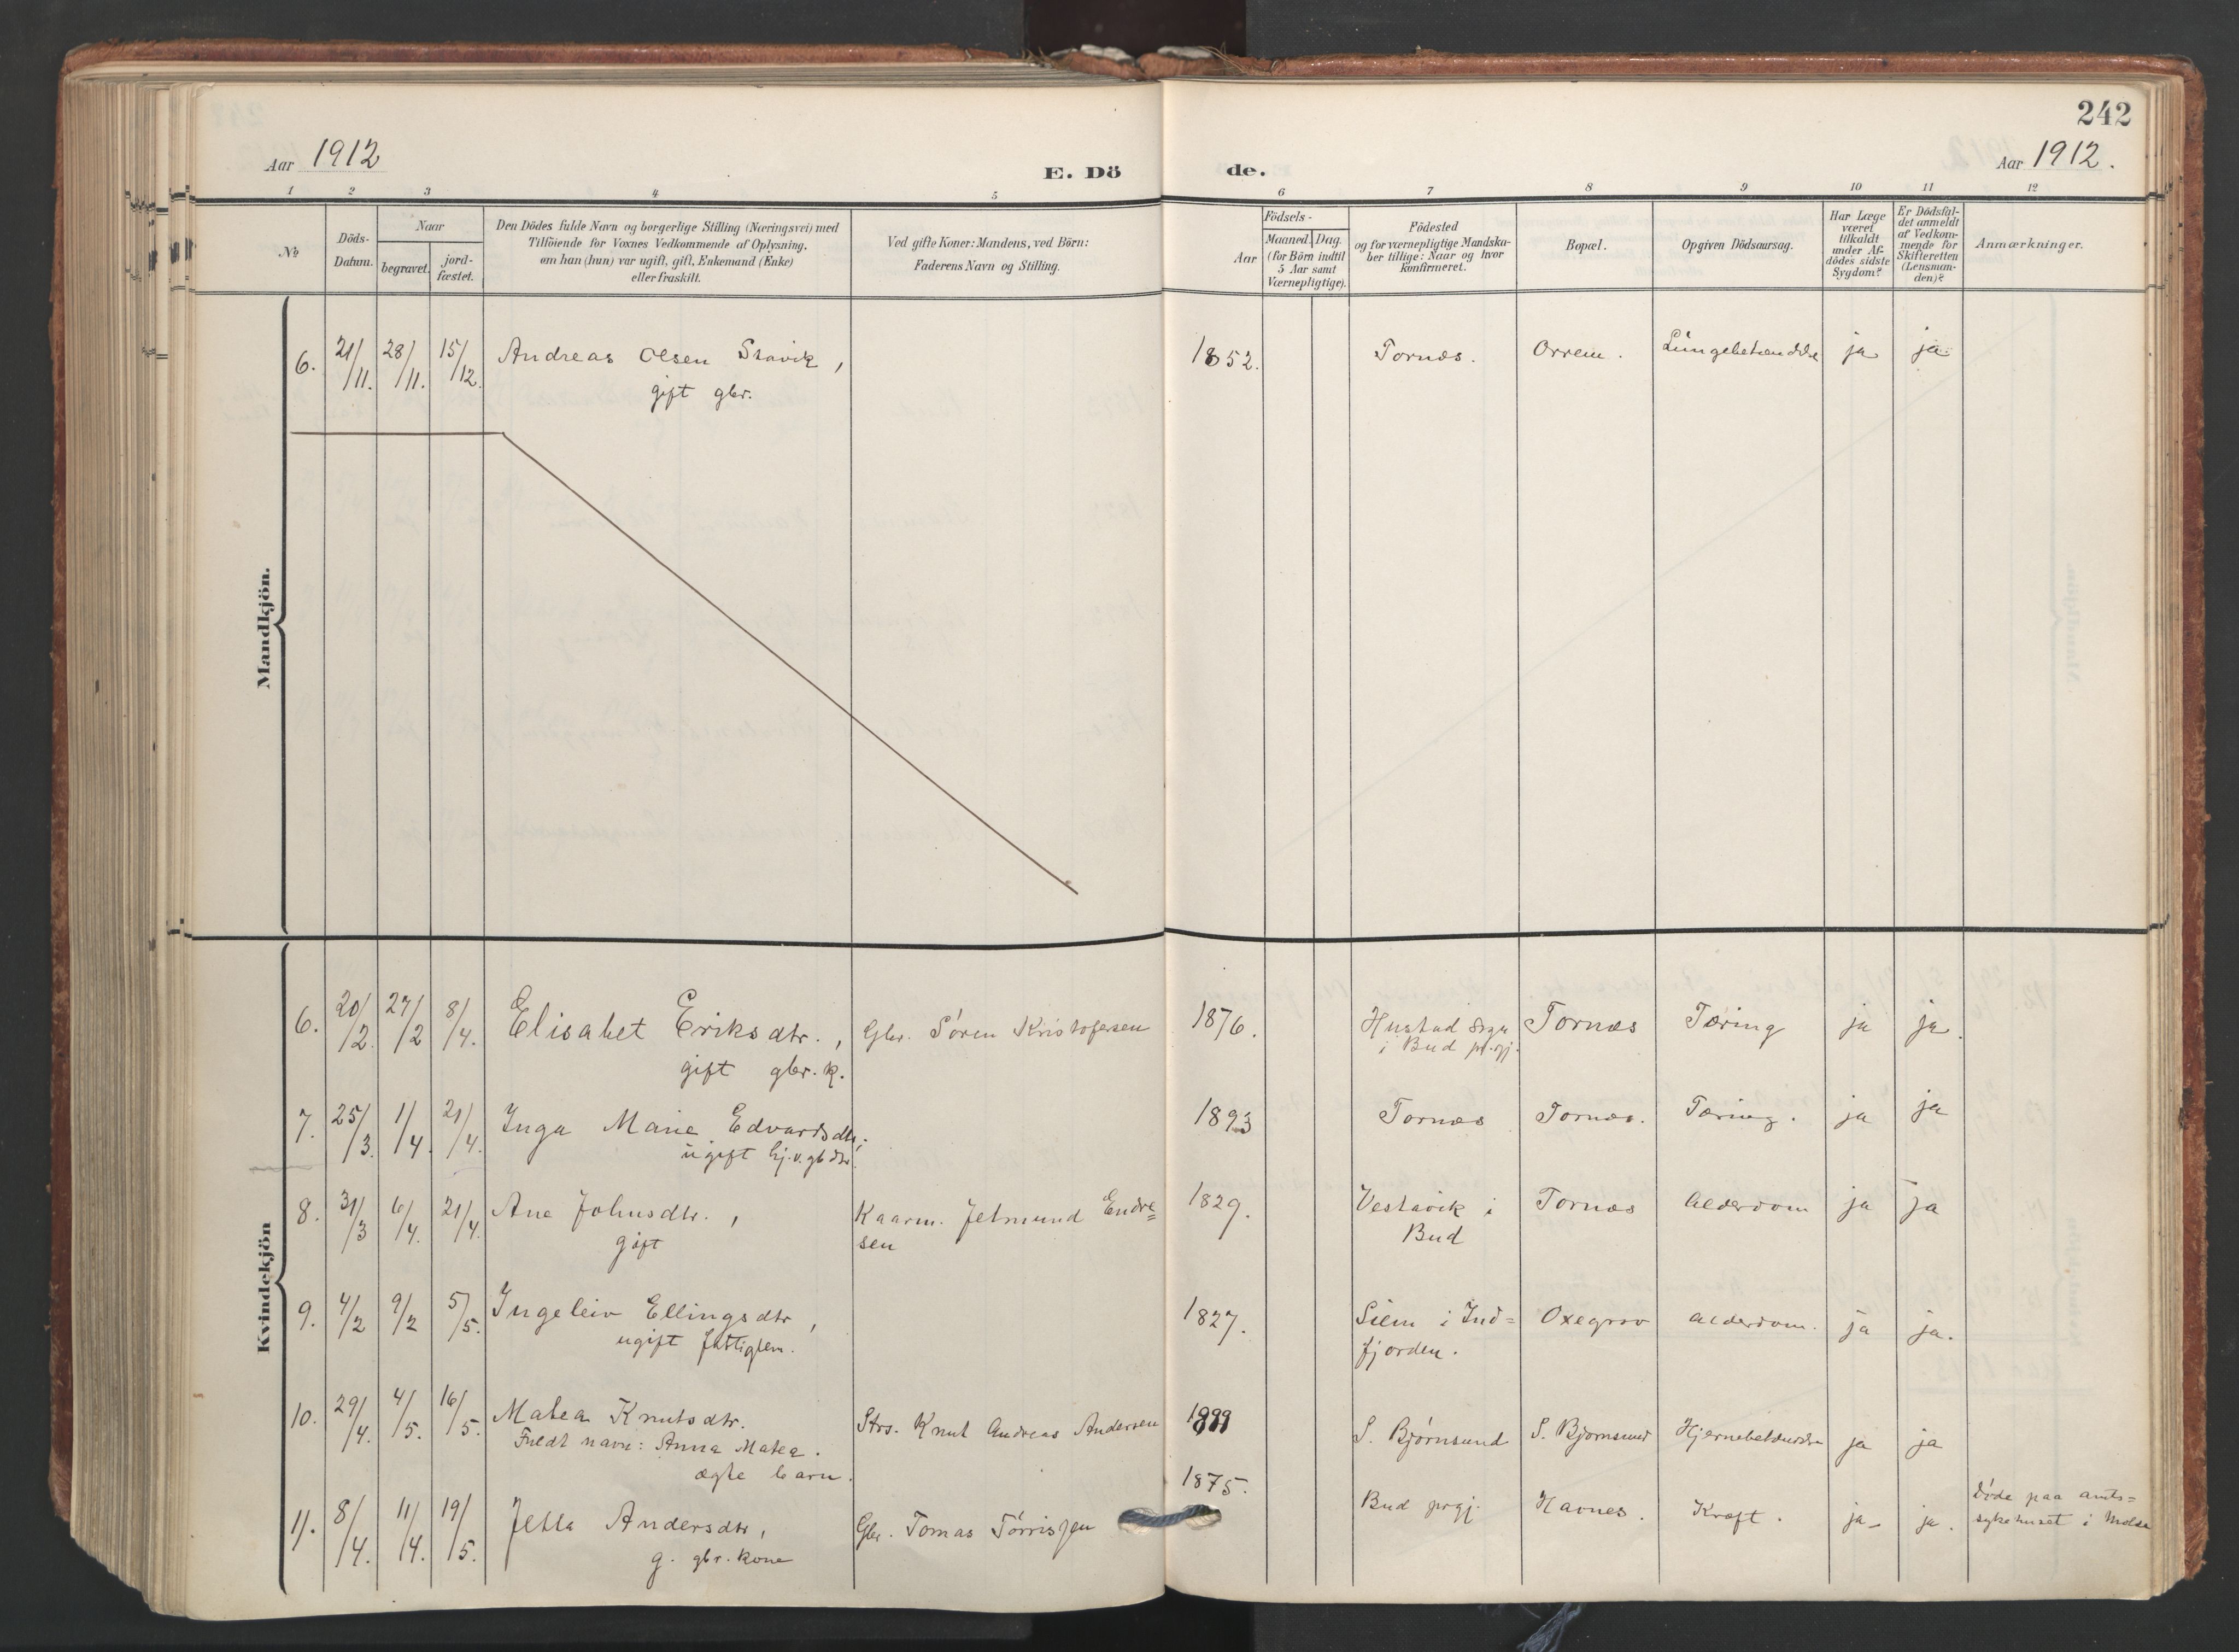 242
Aar 1912
E. Dö de.
Aar 1912.
1 2 3 4 5 6 7 8 9 10 11 12
№
Döds-
Datum.
Naar
begravet.
jord-
fæstet.
Den Dödes fulde Navn og borgerlige Stilling (Næringsvei) med
Tilföiende for Voxnes Vedkommende af Oplysning,
om han (hun) var ugift, gift, Enkemand (Enke)
eller fraskilt.
Ved gifte Koner: Mandens, ved Börn:
Faderens Navn og Stilling.
Födsels-
Aar
Maaned. Dag.
(for Börn indtil
5 Aar samt
Værnepligtige).
Födested
og for værnepligtige Mandska-
ber tillige: Naar og hvor
konfirmeret.
Bopæl.
Opgiven Dödsaarsag.
Har Læge
været
tilkaldt
under Af-
dödes sidste
Sygdom?
Er Dödsfal-
det anmeldt
af Vedkom-
mende for
Skifteretten
(Lensman-
den)?
Anmærkninger.
Mandkjön.
6. 21/11. 28/11. 15/12. Andreas Olsen Stavik, 1852. Tornæs. Orrem. Lungebetændelse ja ja
gift gbr.
Kvindekjön
6. 20/2. 27/2 8/4. Elisabet Eriksdtr., Gbr. Sören Kristofersen 1876. Hustad sogn Tornæs Tæring ja ja.
gift gbr. k. i Bud pr.gj.
7. 25/3. 1/4. 21/4. Inga Marie Edvardsdtr, 1893 Tornæs Tornæs. Tæring. ja ja
ugift hj.v. gb dtr.
8. 31/3 6/4. 21/4. Ane Johnsdtr., Kaarm. Jetmund Endre= 1829. Vestavik i Tornæs Alderdom ja ja
gift sen Bud
9. 4/2 9/2 5/5. Ingeleiv Ellingsdtr, 1827. Siem i Ind= Oxegrov Alderdom. ja ja.
ugift fattiglem. fjorden.
10. 29/4. 4/5. 16/5. Matea Knutsdtr. Strs. Knut Andreas Andersen 1899 S. Björnsund S. Björnsund Hjernebetændelse ja ja
Fuldt navn: Anna Matea.
ægte barn.
11. 8/4. 11/4. 19/5. Jetta Andersdtr, Gbr. Tomas Törrissen 1875. Bud prgj. Havnes. Kræft. ja ja. Döde paa amts=
g. gbr. kone sykehuset i Molde